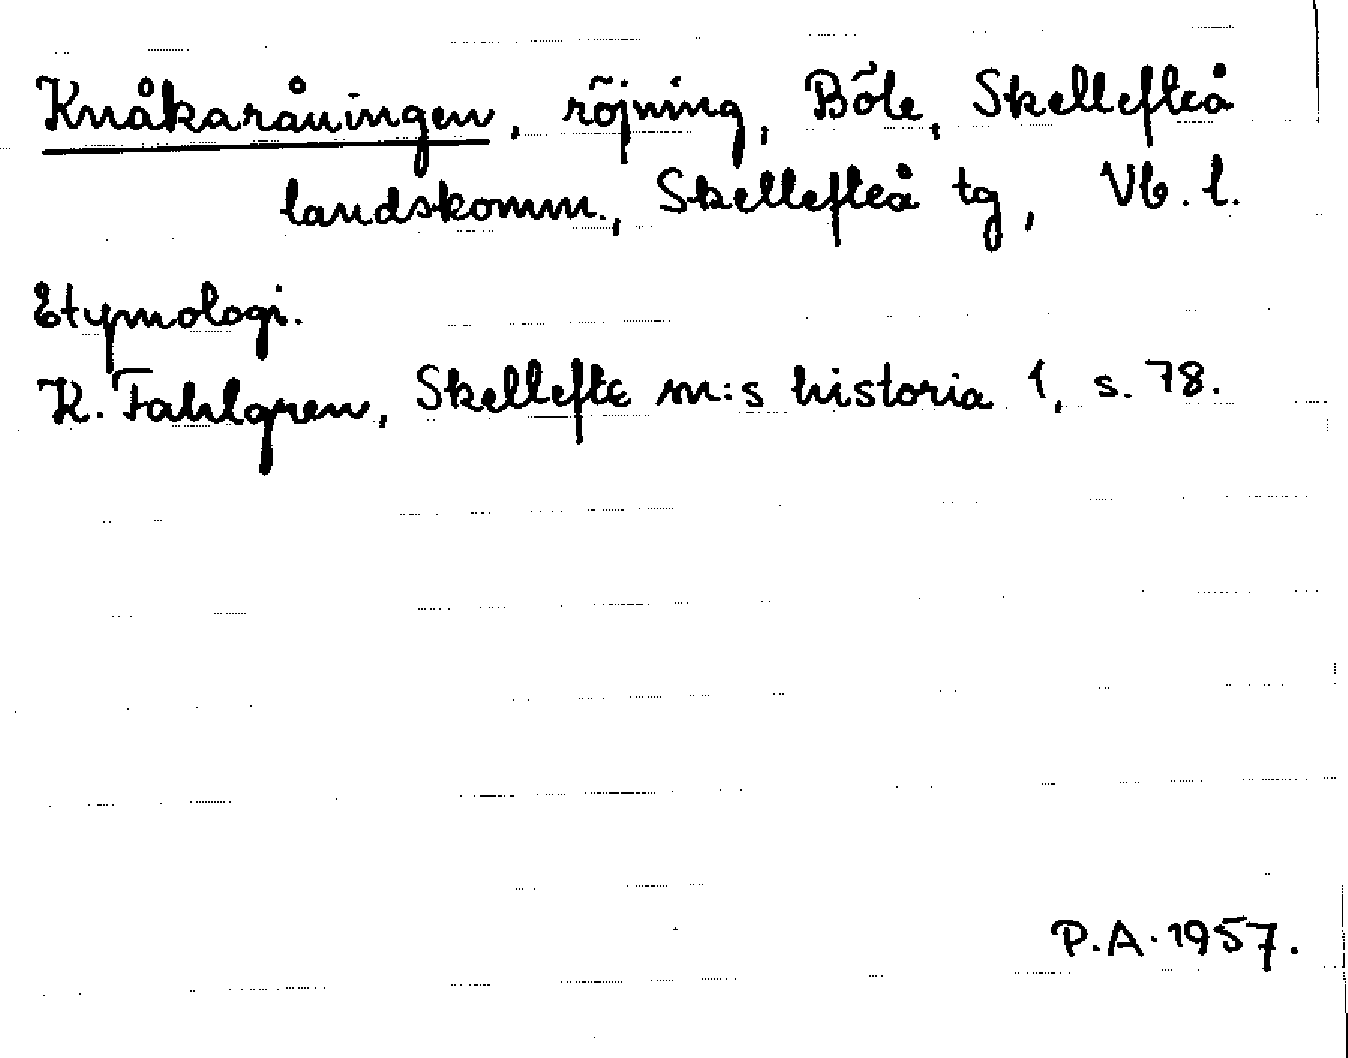 Knåkaråningen, röjning, Böle, Skellefteå
landskomm., Skellefteå tg, Vb. l.
Etymologi.
K. Fahlgren, Skellefte sn:s historia 1, s. 78.
P.A. 1957.